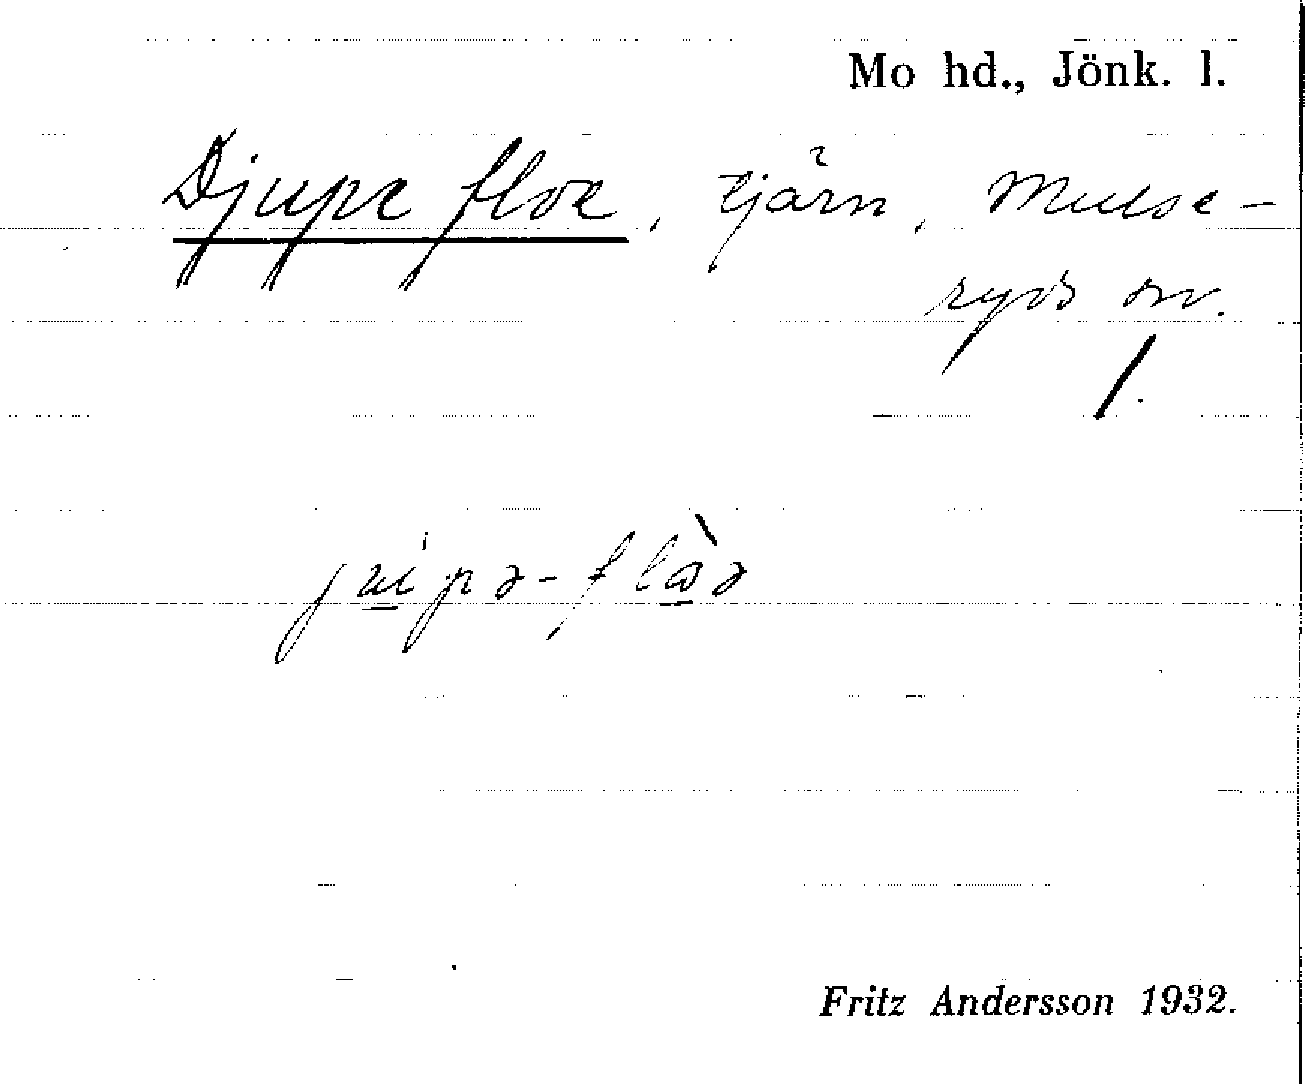 Mo hd., Jönk. l.
Djupe floe, tjärn, Mulse-
ryds sn.
/.
Fritz Andersson 1932.